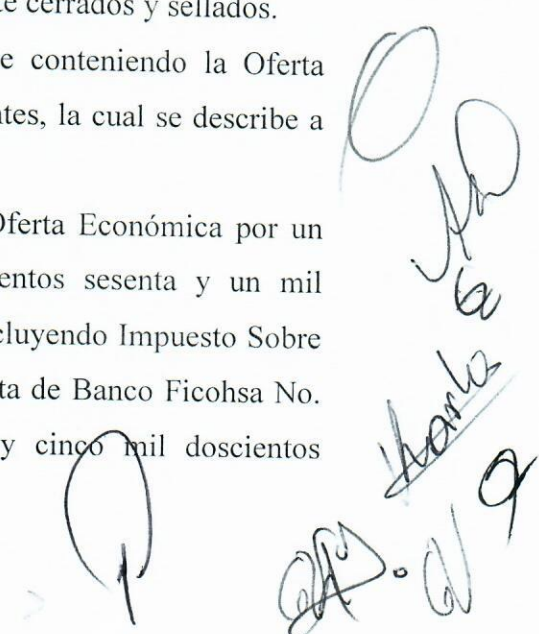 te cerrados y sellados.
e conteniendo la Oferta
ntes, la cual se describe a
Oferta Económica por un
entos sesenta y un mil
cluyendo Impuesto Sobre
ta de Banco Ficohsa No.
y cinco mil doscientos
Karla